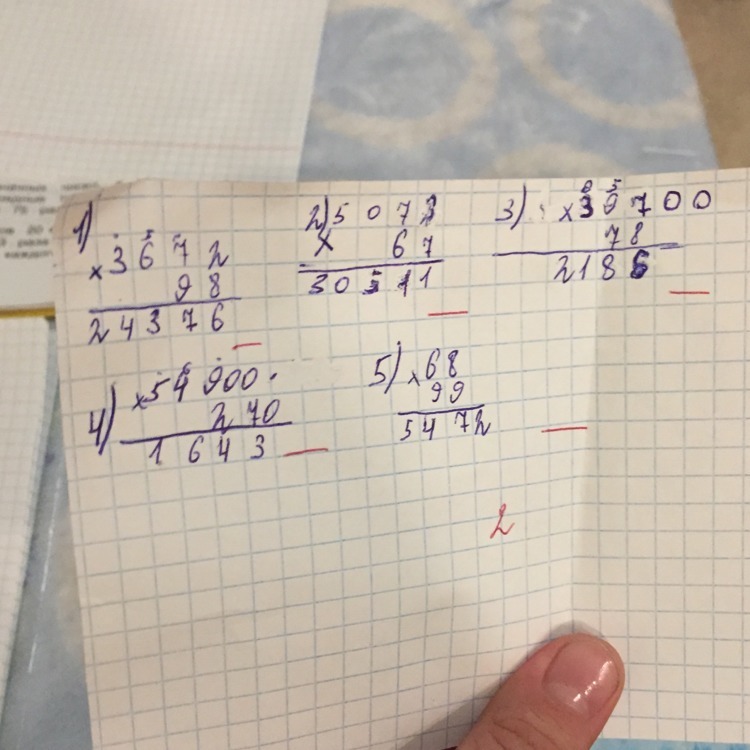 1)
× 3672
98
24376
2) 5073
× 67
30511
3) × 39700
78
2186
4) × 54900
270
1643
5) × 68
99
5472
2